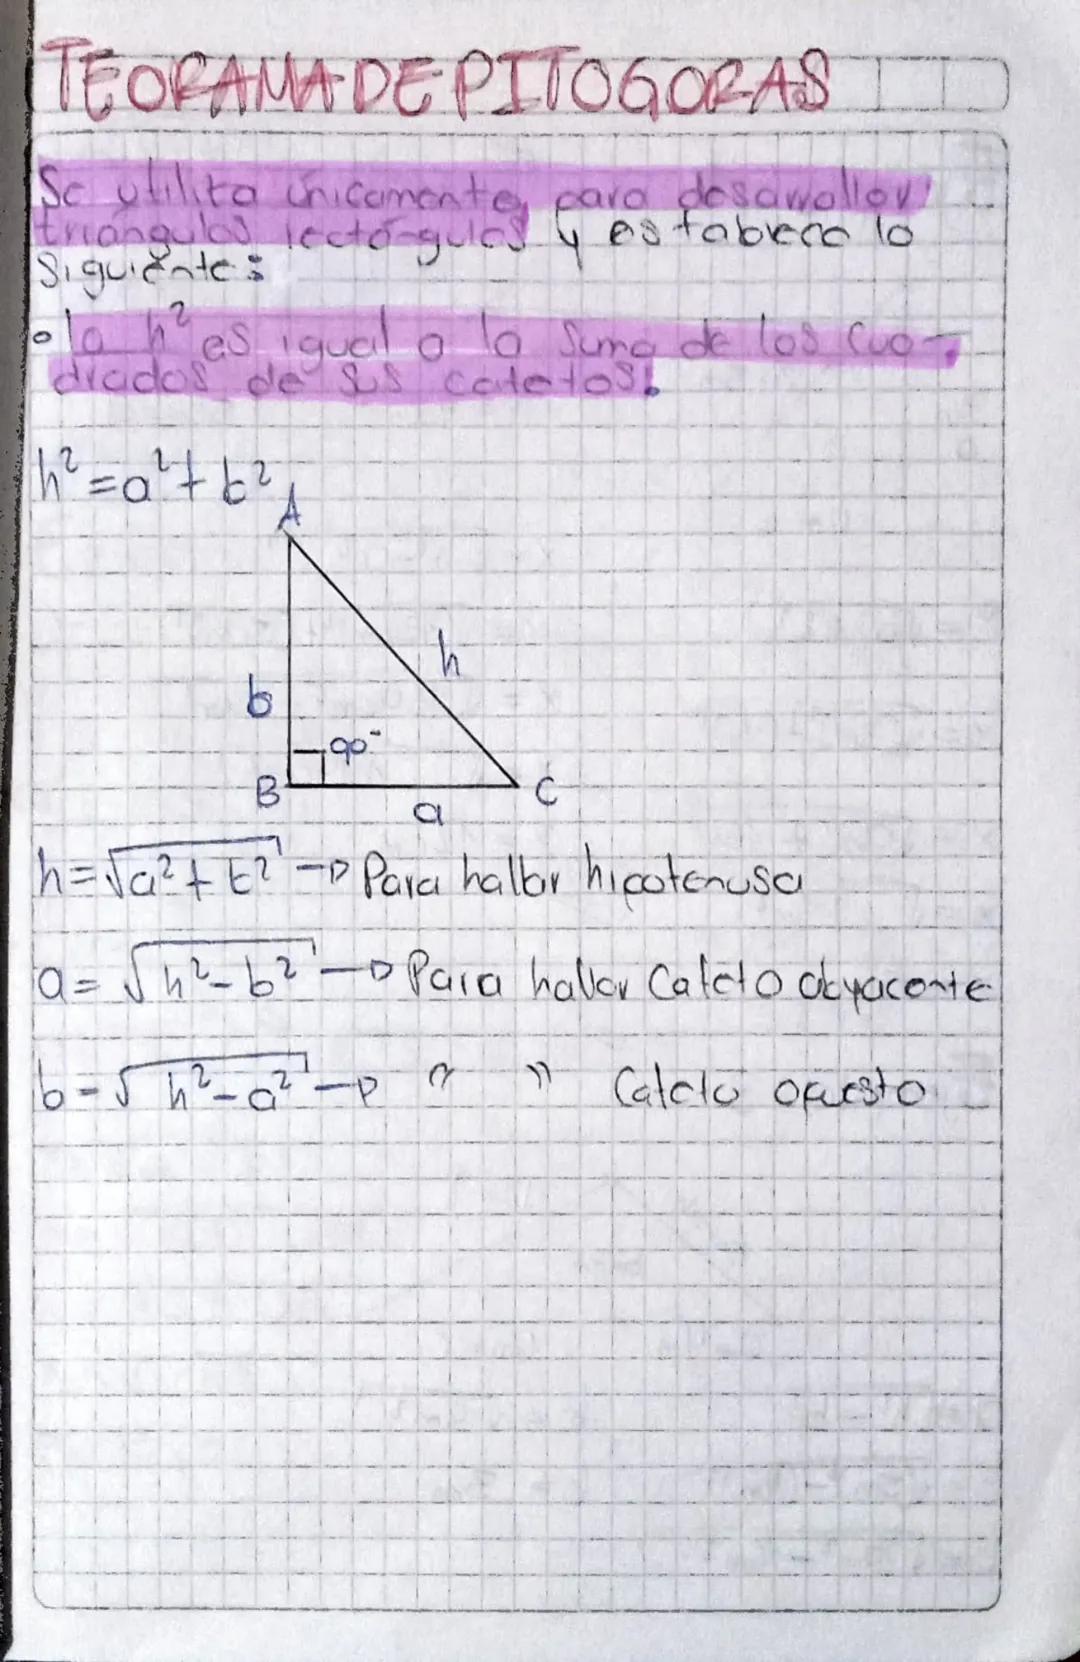 TEORAMA DE PITOGORAS
Se utiliza únicamente para desarrollar
triángulos rectángulos y establece lo
siguiente:
• la h² es igual a la suma de los cua-
drados de sus catetos.
h² = a² + b²
A
h
b
90°
B
C
a
h = √a² + b² → Para hallar hipotenusa
a = √h² - b² → Para hallar Cateto adyacente
b = √h² - a² → " " Cateto opuesto